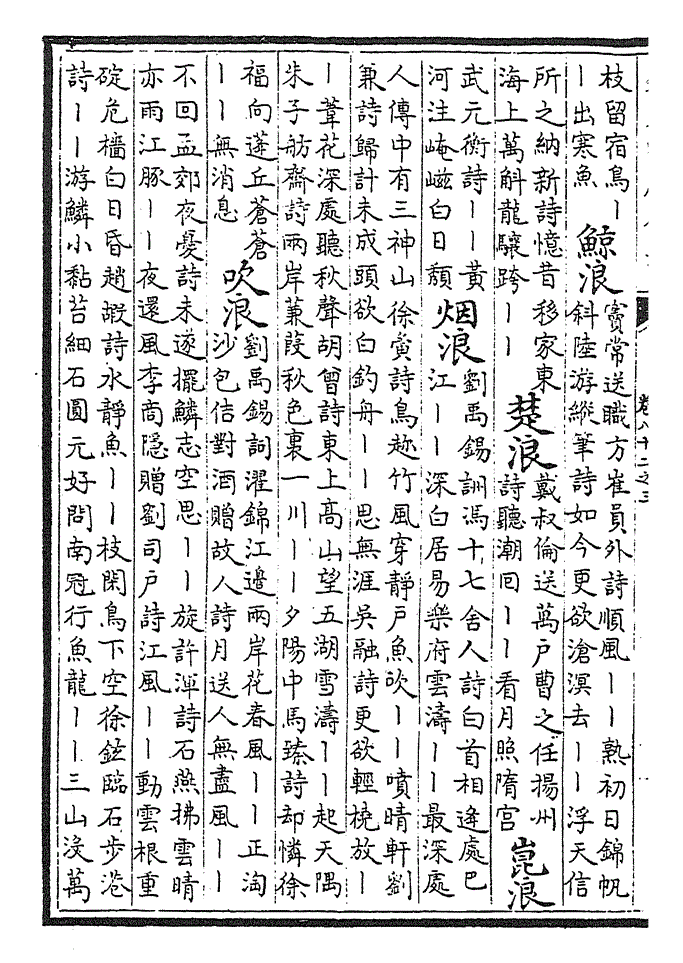 枝留宿鳥丨
丨出寒魚
鯨浪
竇常送職方崔員外詩順風丨丨熟初日錦帆
斜陸游縱筆詩如今更欲滄溟去丨丨浮天信
所之納新詩憶昔移家東
海上萬斛龍驤跨丨丨
楚浪
戴叔倫送萬戶曹之任揚州
詩聽潮回丨丨看月照隋宫
崑浪
武元衡詩丨丨黃
河注崦嵫白日頽
烟浪
劉禹錫詶馮十七舍人詩白首相逢處巴
江丨丨深白居易樂府雲濤丨丨最深處
人傳中有三神山徐夤詩鳥趂竹風穿靜戶魚吹丨丨噴晴軒劉
兼詩歸計未成頭欲白釣舟丨丨思無涯吳融詩更欲輕橈放丨
丨葦花深處聽秋聲胡曾詩東上髙山望五湖雪濤丨丨起天隅
朱子舫齋詩兩岸蒹葭秋色裏一川丨丨夕陽中馬臻詩却憐徐
福向蓬丘蒼蒼
丨丨無消息
吹浪
劉禹錫詞濯錦江邊兩岸花春風丨丨正淘
沙包佶對酒贈故人詩月送人無盡風丨丨
不回孟郊夜憂詩未遂擺鱗志空思丨丨旋許渾詩石燕拂雲晴
亦雨江豚丨丨夜還風李商隱贈劉司戶詩江風丨丨動雲根重
碇危檣白日昏趙嘏詩水靜魚丨丨枝閑鳥下空徐鉉臨石步港
詩丨丨游鱗小黏苔細石圓元好問南冠行魚龍丨丨三山没萬
卷八十二之三